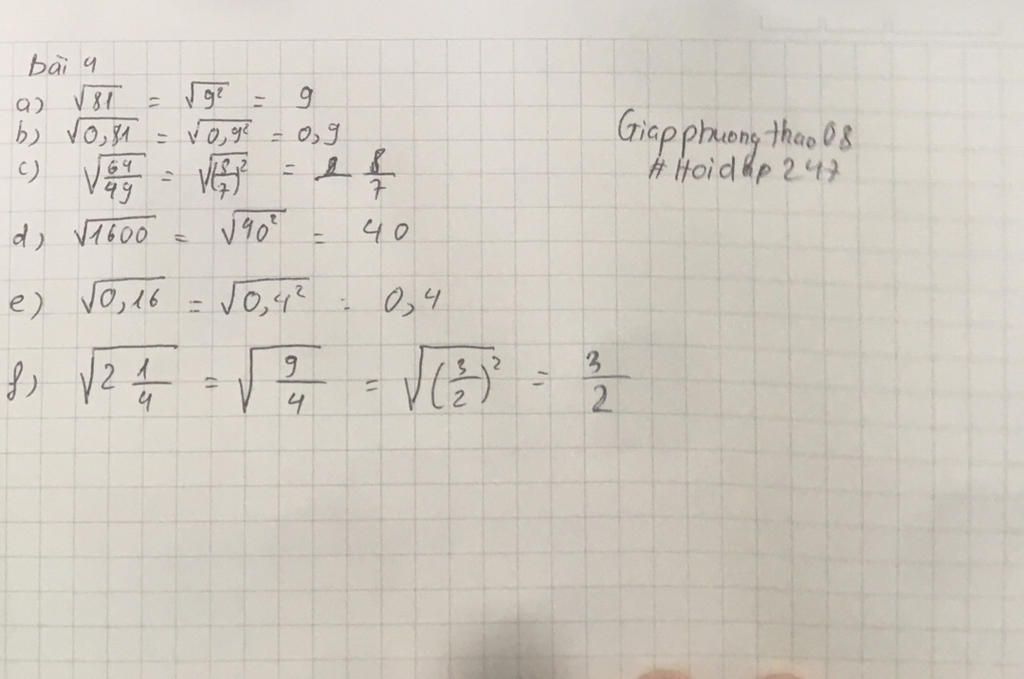 bài 4
a) √81 = √9² = 9
b) √0,81 = √0,9² = 0,9
c) √(64/49) = √(8/7)² = 8/7
d) √1600 = √40² = 40
e) √0,16 = √0,4² = 0,4
f) √(2 1/4) = √(9/4) = √(3/2)² = 3/2
Giapphuongthao08
# Hoidap 247